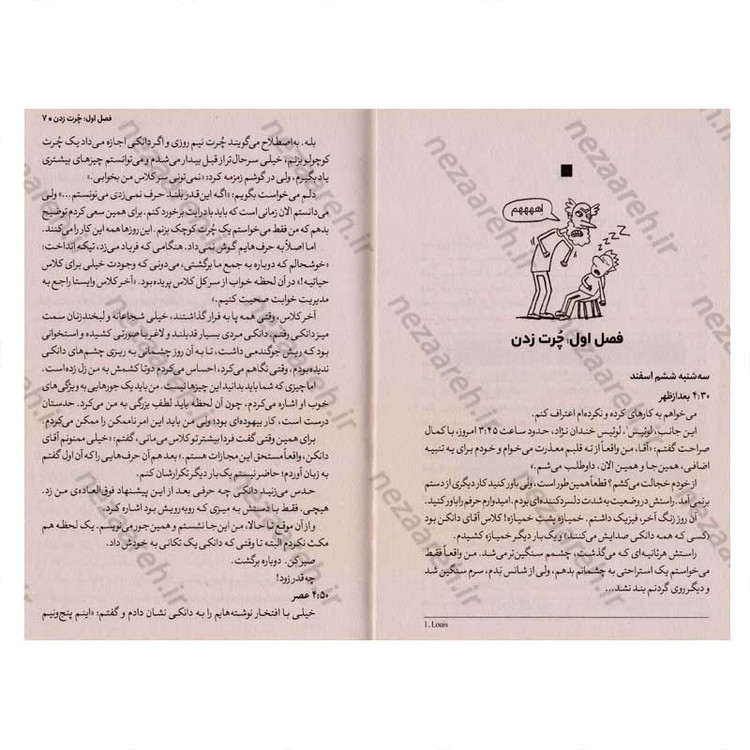 اِهههههم
zzzz
فصل اول: چُرت زدن
سه‌شنبه ششم اسفند
۴:۳۰ بعدازظهر
می‌خواهم به کارهای کرده و نکرده‌ام اعتراف کنم.
این جانب، لوئیس۱، لوئیس خندان نژاد، حدود ساعت ۳:۴۵ امروز، با کمال
صراحت گفتم: «آقا، من واقعاً از ته قلبم معذرت می‌خوام و خودم برای یه تنبیه
اضافی، همین جا و همین الان، داوطلب می‌شم.»
از خودم خجالت می‌کشم؟ قطعاً همین‌طور است، ولی باور کنید کار دیگری از دستم
برنمی‌آمد. راستش در وضعیت به شدت دلسردکننده‌ای بودم. امیدوارم حرفم را باور کنید.
آن روز زنگ آخر، فیزیک داشتم. خمیازه پشت خمیازه! کلاس آقای دانکن بود
(کسی که همه دانکی صدایش می‌کنند) و یک بار دیگر خمیازه کشیدم.
راستش هر ثانیه‌ای که می‌گذشت، چشمم سنگین‌تر می‌شد. من واقعاً فقط
می‌خواستم یک استراحتی به چشمانم بدهم، ولی از شانس بَدم، سرم سنگین شد
و دیگر روی گردنم بند نشد...
1. Louis
فصل اول: چُرت زدن • ۷
بله. به‌اصطلاح می‌گویند چُرت نیم روزی و اگر دانکی اجازه می‌داد یک چُرت
کوچولو بزنم، خیلی سرحال‌تر از قبل بیدار می‌شدم و می‌توانستم چیزهای بیشتری
یاد بگیرم، ولی در گوشم زمزمه کرد: «نمی‌تونی سر کلاس من بخوابی.»
دلم می‌خواست بگویم: «اگه این قدر بلند حرف نمی‌زدی می‌تونستم...» ولی
می‌دانستم الان زمانی است که باید با درایت برخورد کنم. برای همین سعی کردم توضیح
بدهم که من فقط می‌خواستم یک چُرت کوچک بزنم. این روزها همه این کار را می‌کنند.
اما اصلاً به حرف‌هایم گوش نمی‌داد. هنگامی که فریاد می‌زد، تیکه انداخت:
«خوشحالم که دوباره به جمع ما برگشتی، می‌دونی که وجودت خیلی برای کلاس
حیاتیه!» در آن لحظه خواب از سر کل کلاس پریده بود. «آخر کلاس وایستا راجع به
مدیریت خوابت صحبت کنیم.»
آخر کلاس، وقتی همه پا به فرار گذاشتند، خیلی شجاعانه و لبخندزنان سمت
میز دانکی رفتم. دانکی مردی بسیار قدبلند و لاغر با صورتی کشیده و استخوانی
بود که ریش جوگندمی داشت، تا به آن روز چشمانی به ریزی چشم‌های دانکی
ندیده بودم. وقتی نگاهم می‌کرد، احساس می‌کردم دوتا کشمش به من زل زده است.
اما چیزی که شما باید بدانید این چیزها نیست. من باید یک جورهایی به ویژگی‌های
خوب او اشاره می‌کردم، چون آن لحظه باید لطف بزرگی به من می‌کرد. حدستان
درست است، کار بیهوده‌ای بود؛ ولی من باید این امر ناممکن را ممکن می‌کردم.
برای همین وقتی گفت فردا بیشتر تو کلاس می‌مانی، گفتم: «خیلی ممنونم آقای
دانکن، واقعاً مستحق این مجازات هستم.» بعد هم آن حرف‌هایی را که آن اول گفتم
به زبان آوردم؛ حاضر نیستم یک بار دیگر تکرارشان کنم.
حدس می‌زنید دانکی چه حرفی بعد از این پیشنهاد فوق‌العاده‌ی من زد.
هیچی. فقط با دستش به میزی که روبه‌رویش بود اشاره کرد.
و از آن موقع تا حالا، من این‌جا نشستم و همین‌جور می‌نویسم. یک لحظه هم
مکث نکردم البته تا وقتی که دانکی یک تکانی به خودش داد.
صبر کن. دوباره برگشت.
چه قدر زود!
۴:۵۰ عصر
خیلی با افتخار نوشته‌هایم را به دانکی نشان دادم و گفتم: «اینم پنج‌ونیم
nezaareh.ir